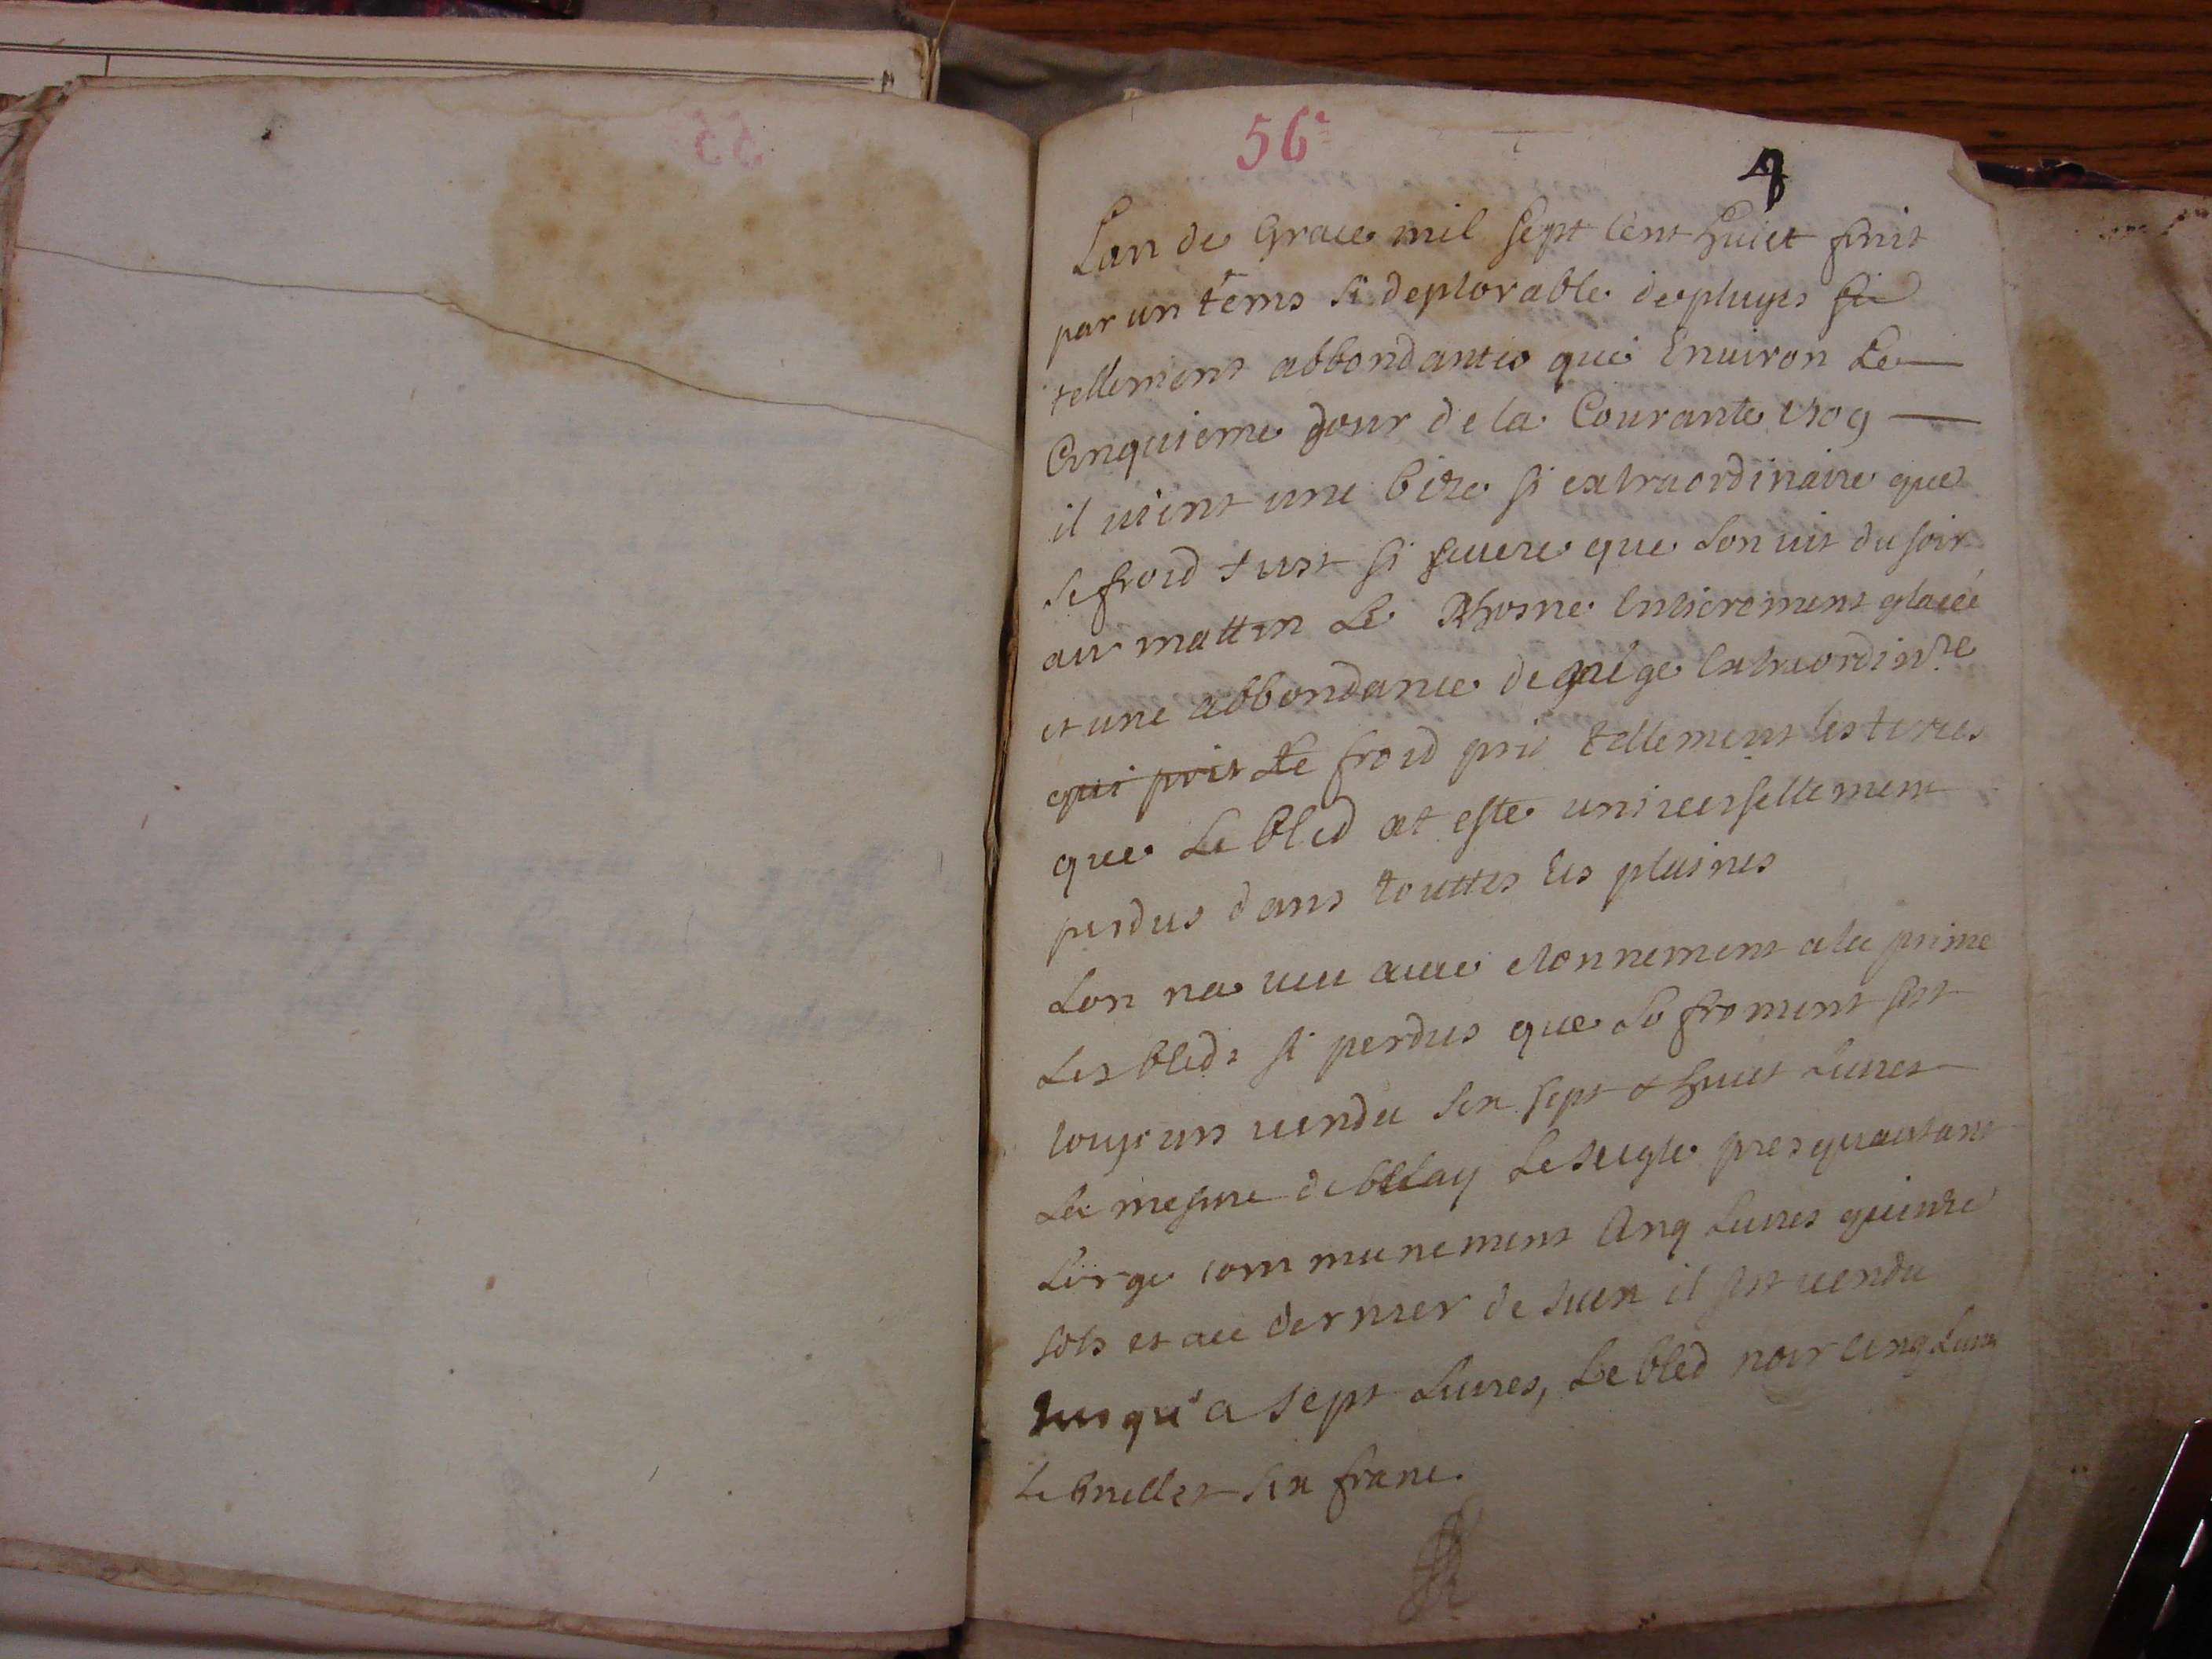 56
Lan de Grace mil sept Cent huict finit
par un tems si deplorable de pluyes si
tellement abbondantes que Environ Le
Cinquieme Jour de la Courante 1709
il uient une bize si extraordinaire que
le froid fust si seuere que Lon uit du soir
au mattin Le Rhosne Entierement glacé
et une abbondance de neige Extraordinre
qui prit Le froid prit tellement les terres
que Le bled at esté uniuersellement
perdus dans touttes Les plaines
Lon na ueu auec etonnement a la prime
Les bleds si perdus que Le froment sest
toujours uendu six sept & huict Liures
La mesure de bellay Le seigle presquautant
Lorge communement Cinq Liures quinze
sols et au dernier de Juin il sest uendu
Jusqu'a sept Liures, Le bled noir cinq Liures
Le millet six franc.